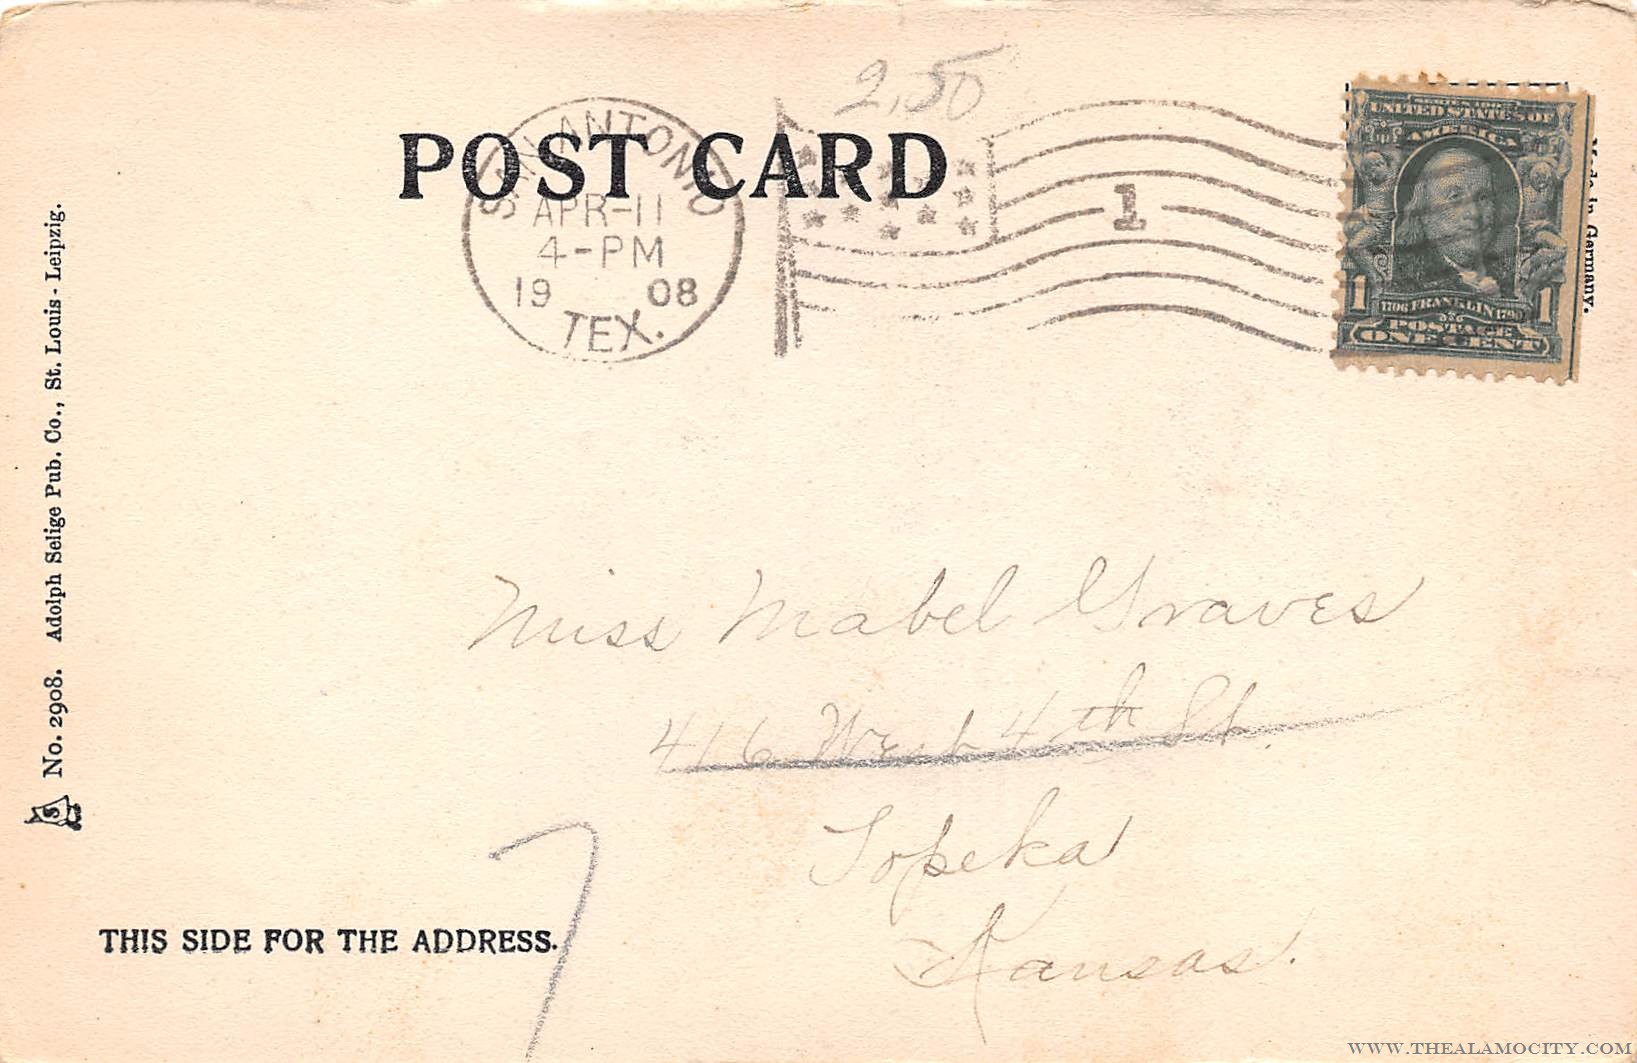 2,50
POST CARD
SAN ANTONIO
APR-11
4-PM
19 08
TEX.
1
UNITED STATES OF
AMERICA
1706 FRANKLIN 1790
1 1
POSTAGE
ONE CENT
Made in Germany.
Miss Mabel Graves
416 West 4th St.
Topeka
Kansas.
7
THIS SIDE FOR THE ADDRESS.
S No. 2908. Adolph Selige Pub. Co., St. Louis - Leipzig.
WWW.THEALAMOCITY.COM